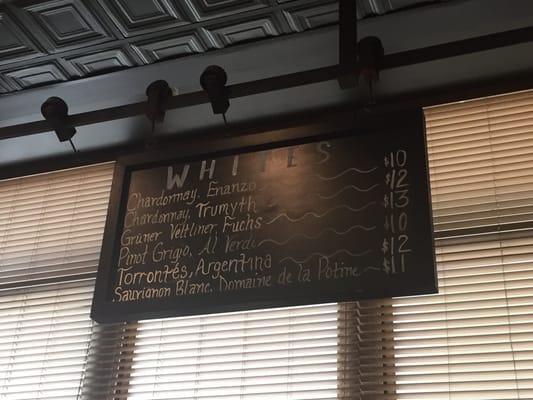 WHITES
Chardonnay, Enanzo $10
Chardonnay, Trumyth $12
Grüner Veltliner, Fuchs $13
Pinot Grigio, Al Verdi $10
Torrontés, Argentina $12
Sauvignon Blanc, Domaine de la Potine $11